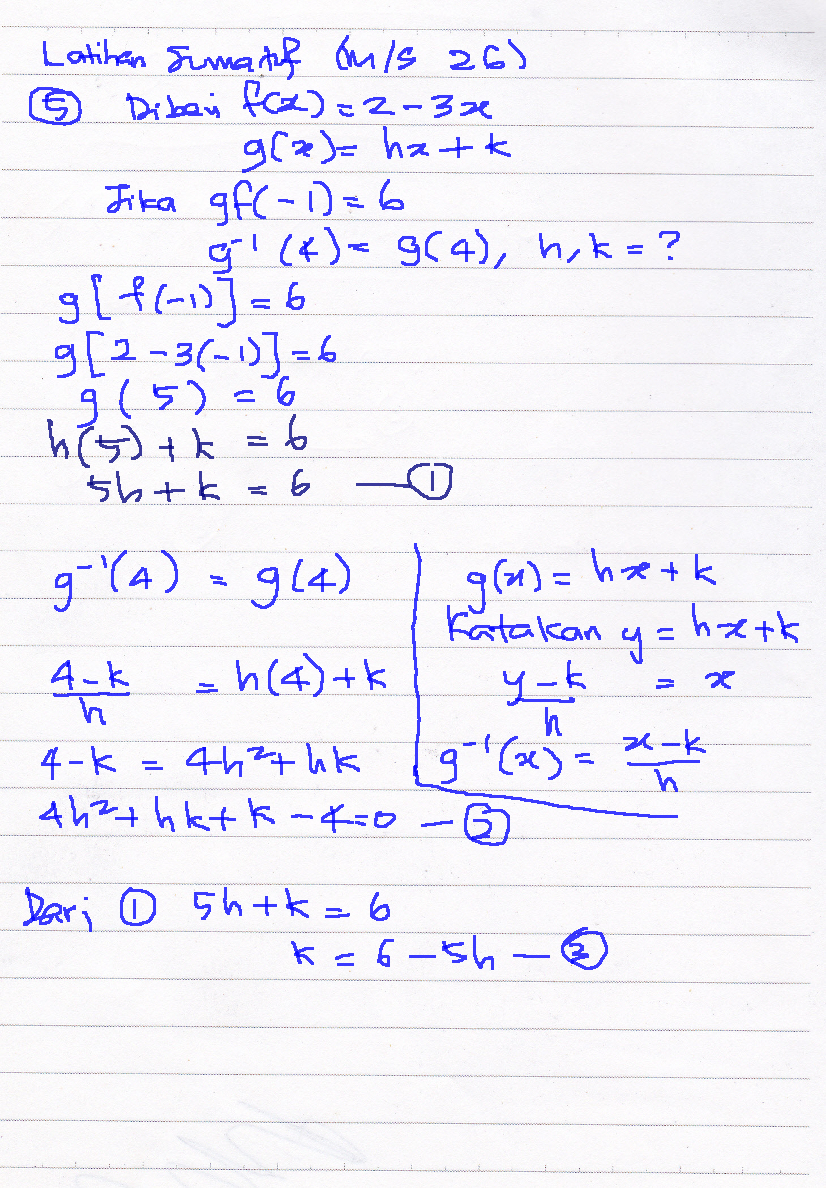 Latihan Sumatif (m/s 26)
⑤ Diberi f(x) = 2 - 3x
g(x) = hx + k
Jika gf(-1) = 6
g⁻¹(4) = g(4), h, k = ?
g[f(-1)] = 6
g[2 - 3(-1)] = 6
g(5) = 6
h(5) + k = 6
5h + k = 6 — ①
g⁻¹(4) = g(4)
4-k/h = h(4) + k
4 - k = 4h² + hk
4h² + hk + k - 4 = 0 — ②
g(x) = hx + k
Katakan y = hx + k
y-k/h = x
g⁻¹(x) = x-k/h
Dari ① 5h + k = 6
k = 6 - 5h — ③